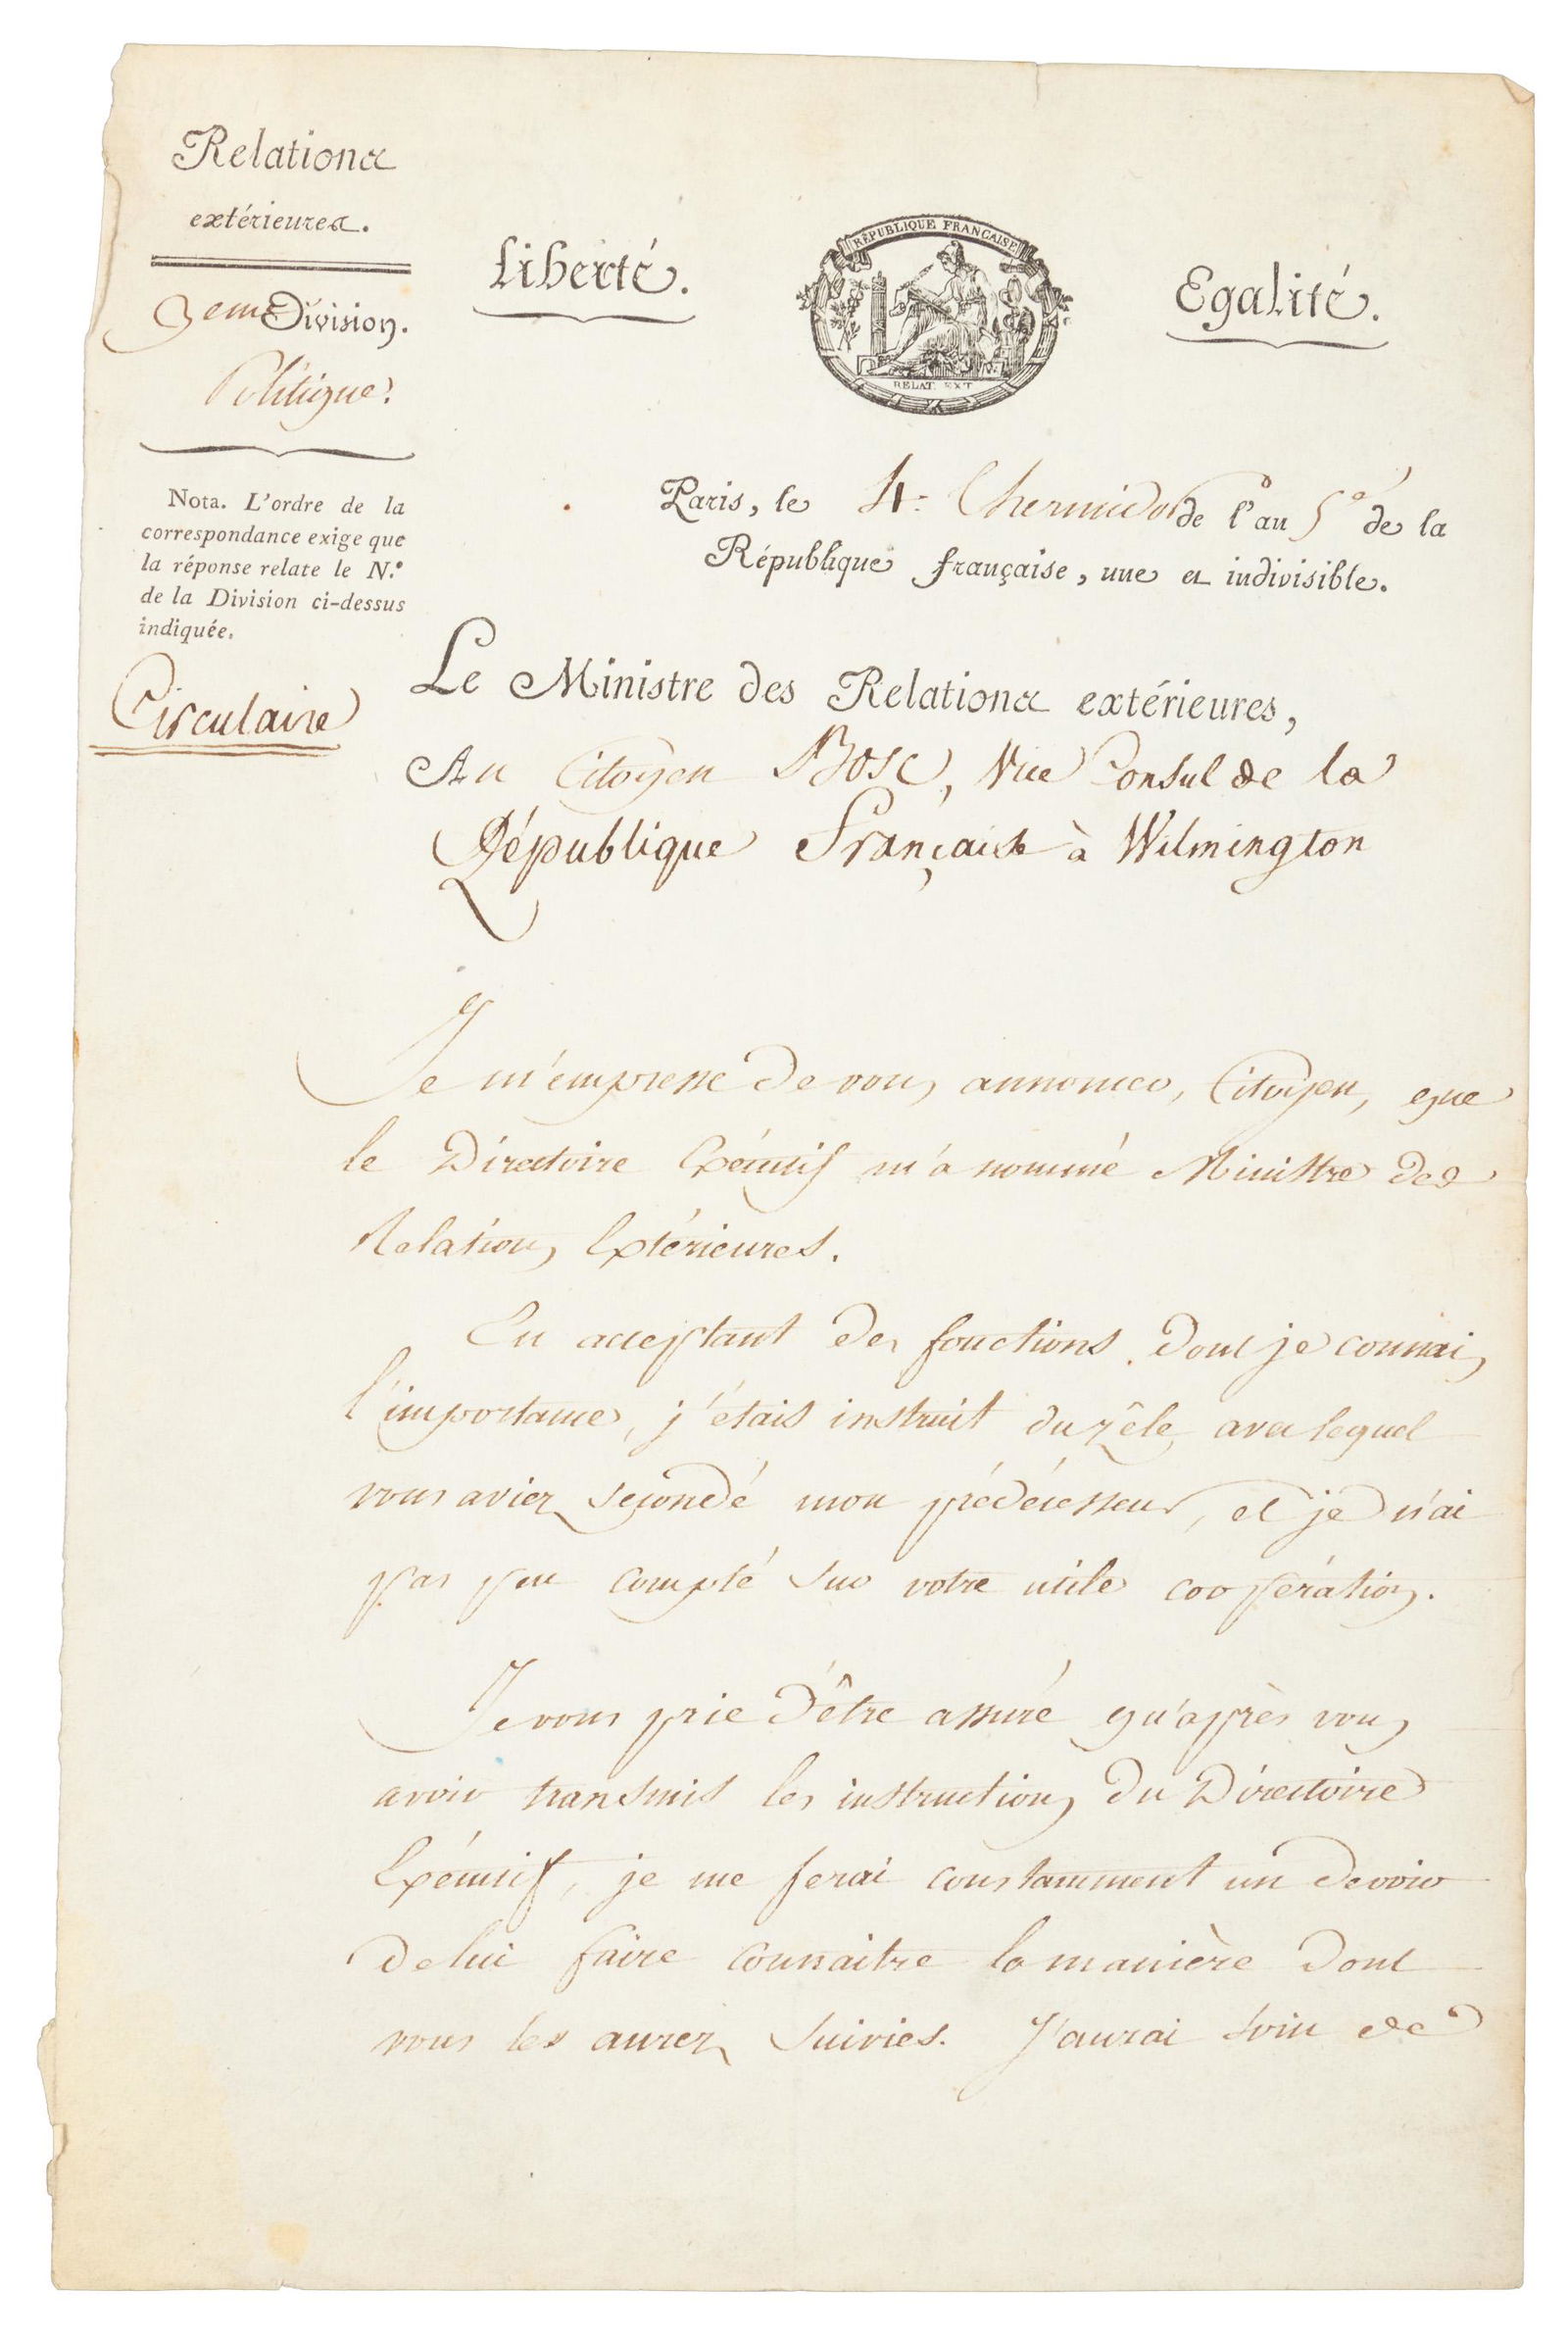 Relations
extérieures.
3eme Division.
Politique.
Nota. L'ordre de la
correspondance exige que
la réponse relate le N.º
de la Division ci-dessus
indiquée.
Circulaire
Liberté.
RÉPUBLIQUE FRANÇAISE
RELAT. EXT
Egalité.
Paris, le 4. Thermidor de l'an 5º de la
République française, une et indivisible.
Le Ministre des Relations extérieures,
Au Citoyen Bosc, Vice Consul de la
République Française à Wilmington
Je m'empresse de vous annoncer, Citoyen, que
le Directoire Exécutif m'a nommé Ministre des
Relations Extérieures.
En acceptant des fonctions dont je connais
l'importance, j'étais instruit du zêle avec lequel
vous aviez secondé mon prédécesseur, et je n'ai
pas peu compté sur votre utile coopération.
Je vous prie d'être assuré qu'après vous
avoir transmis les instructions du Directoire
Exécutif, je me ferai constamment un devoir
de lui faire connaitre la manière dont
vous les aurez suivies. J'aurai soin de